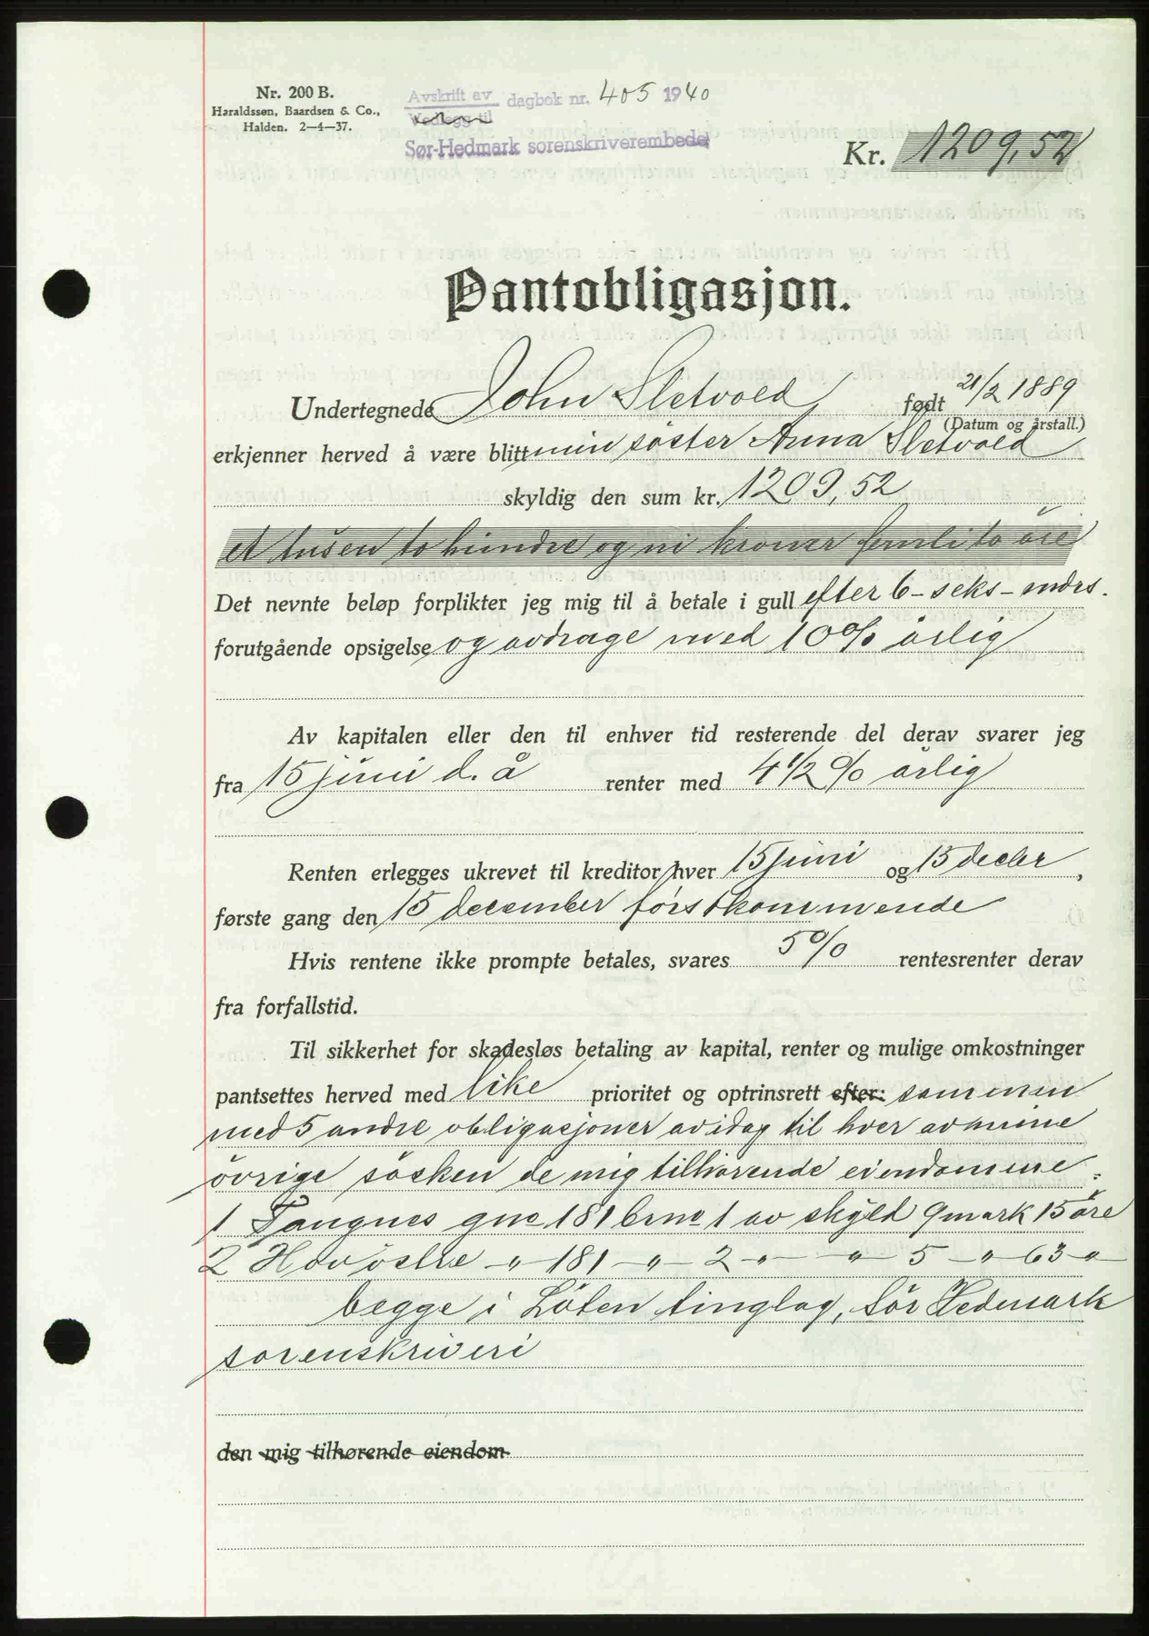 Nr. 200 B.
Haraldssøn, Baardsen & Co.,
Halden. 2—4—37.
Avskrift av
Vedlegg til
dagbok nr. 405 1940
Sør-Hedmark sorenskriverembede
Kr. 1209,52
Pantobligasjon.
Undertegnede John Sletvold født 21/2 1889
(Datum og årstall.)
erkjenner herved å være blitt min söster Anna Sletvold
skyldig den sum kr. 1209,52
et tusen to hundre og ni kroner femti to öre
Det nevnte beløp forplikter jeg mig til å betale i gull efter 6 - seks - mdrs.
forutgående opsigelse og avdrage med 10% årlig
Av kapitalen eller den til enhver tid resterende del derav svarer jeg
fra 15 juni d. å renter med 4 1/2 % årlig
Renten erlegges ukrevet til kreditor hver 15 juni og 15 decbr,
første gang den 15 december förstkommende
Hvis rentene ikke prompte betales, svares 5% rentesrenter derav
fra forfallstid.
Til sikkerhet for skadesløs betaling av kapital, renter og mulige omkostninger
pantsettes herved med like prioritet og optrinsrett efter: sammen
med 5 andre obligasjoner av idag til hver av mine
övrige sösken de mig tilhörende eiendomme:
1 Tangnes gno 181 brno 1 av skyld 9 mark 15 öre
2 Hov östre -"- 181 -"- 2 -"- -"- 5 -"- 63 -"-
begge i Löten tinglag, Sör Hedmark
sorenskriveri
den mig tilhørende eiendom